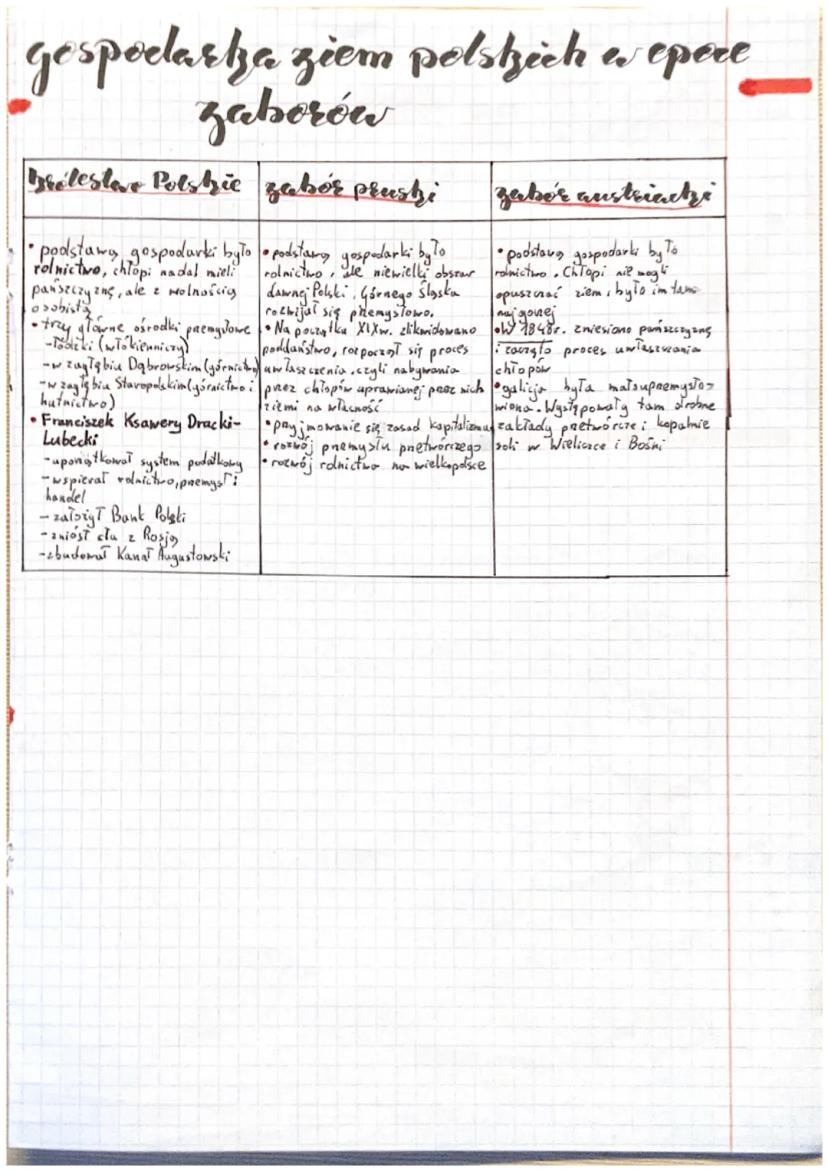 gospodarka ziem polskich w epoce
zaborów
Królestwo Polskie
• podstawą gospodarki było
rolnictwo, chłopi nadal mieli
pańszczyznę, ale z wolnością
osobistą
• trzy główne ośrodki przemysłowe
- łódzki (włókienniczy)
- w zagłębiu Dąbrowskim (górnictwo)
- w zagłębiu Staropolskim (górnictwo i
hutnictwo)
• Franciszek Ksawery Dracki-
Lubecki
- uporządkował system podatkowy
- wspierał rolnictwo, przemysł i
handel
- założył Bank Polski
- zniósł cła z Rosją
- zbudował Kanał Augustowski
zabór pruski
• podstawą gospodarki było
rolnictwo, ale niewielki obszar
dawnej Polski, Górnego Śląska
rozwijał się przemysłowo.
• Na początku XIXw. zlikwidowano
poddaństwo, rozpoczął się proces
uwłaszczenia, czyli nabywania
przez chłopów uprawianej przez nich
ziemi na własność
• przyjmowanie się zasad kapitalizmu
• rozwój przemysłu przetwórczego
• rozwój rolnictwa na wielkopolsce
zabór austriacki
• podstawą gospodarki było
rolnictwo. Chłopi nie mogli
opuszczać ziem, było im tam
najgorzej
• W 1848r. zniesiono pańszczyznę
i zaczęto proces uwłaszczania
chłopów
• galicja była mało uprzemysło-
wiona. Występowały tam drobne
zakłady przetwórcze i kopalnie
soli w Wieliczce i Bośni